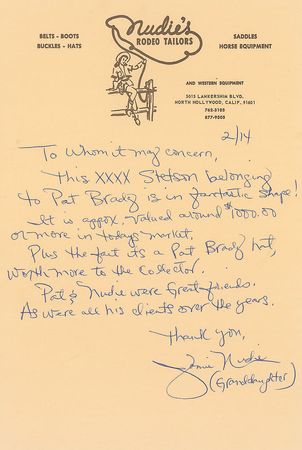 Nudie's
RODEO TAILORS
BELTS - BOOTS
BUCKLES - HATS
SADDLES
HORSE EQUIPMENT
AND WESTERN EQUIPMENT
5015 LANKERSHIM BLVD.
NORTH HOLLYWOOD, CALIF. 91601
762-3105
877-9505
2/14
To whom it may concern,
This XXXX Stetson belonging
to Pat Brady is in fantastic shape!
It is appox. valued around $1000.00
or more in todays market.
Plus the fact its a Pat Brady hat,
worth more to the collector.
Pat & Nudie were Great friends.
As were all his clients over the years.
Thank you,
Jamie Nudie
(Granddaughter)